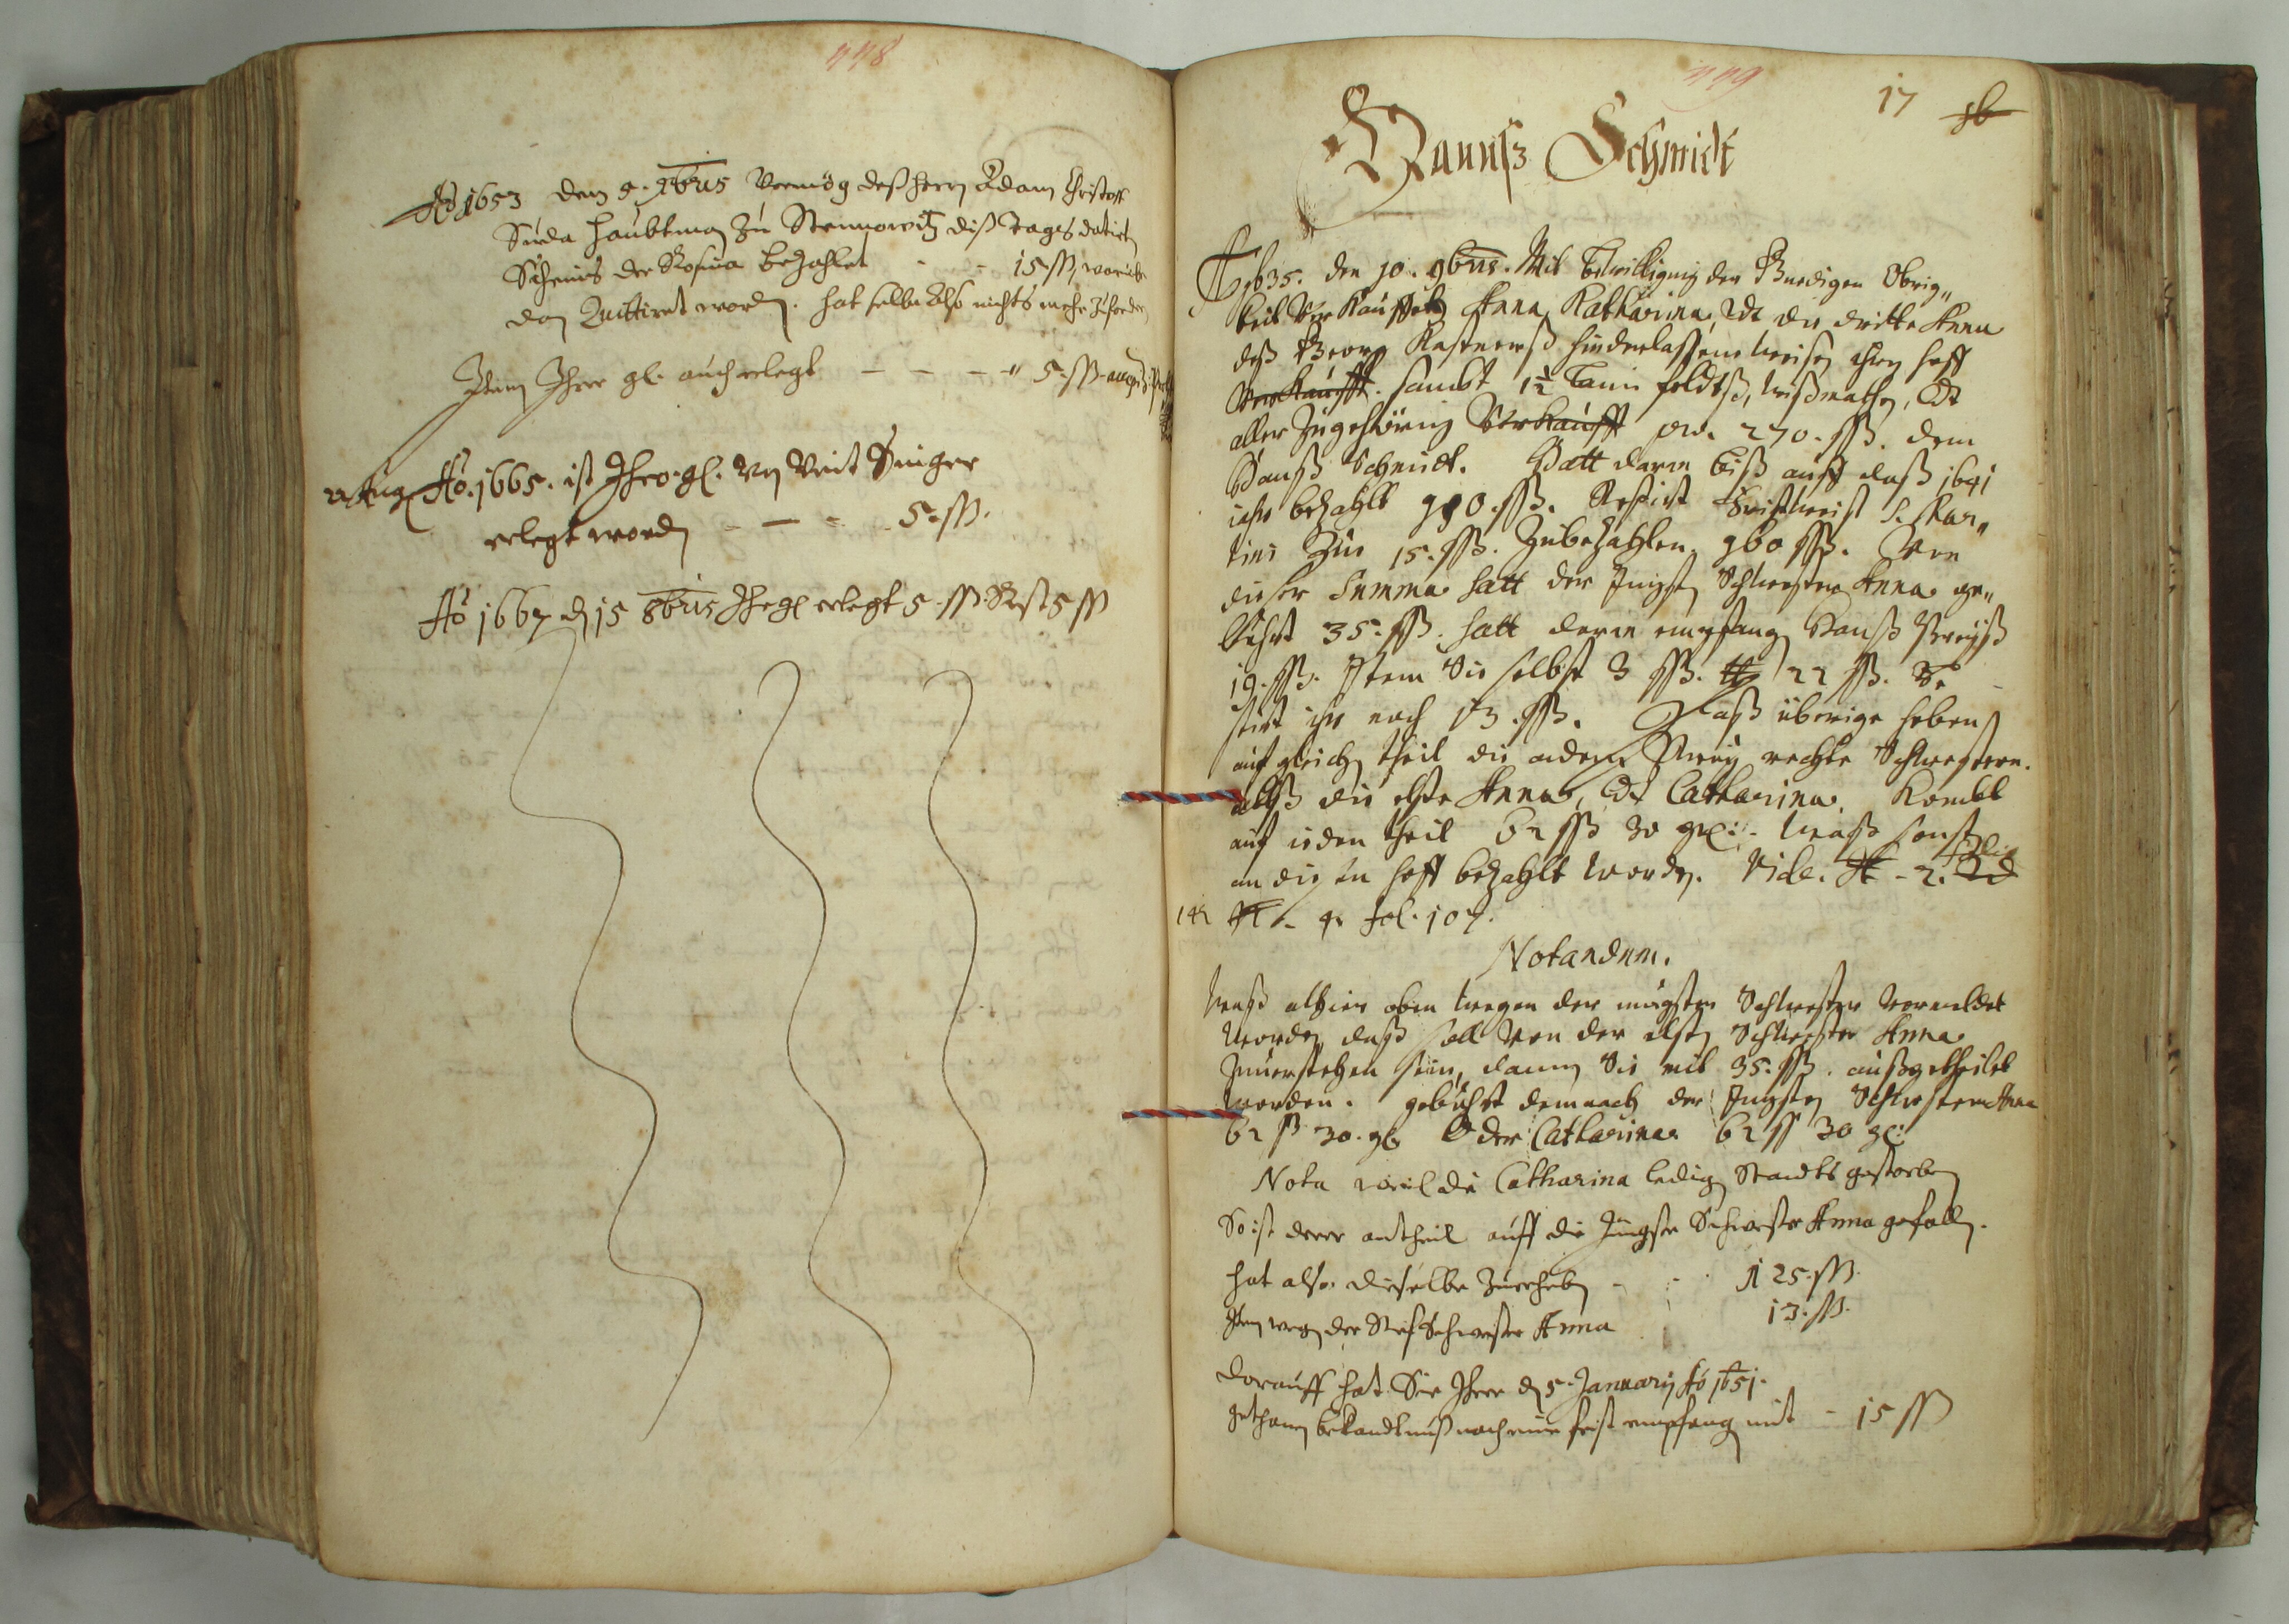 448
Aõ 1653 den 5. 9bris Vermög deß herrn Adam Christoff
Suda Haubtman zu Stenowitz diß Tages datirten
Scheins der Rosina bezahlet - - 15 ß, worüber
dan Quittiret worden. hat selbe Also nichts mehr Zufordern
Item Ihro gl. auch erlegt - - - " 5 ß
Aõ. 1665. ist Ihro gl. Von Veit Singer
erlegt worden - - - 5 ß.
Aõ 1667 den 15 8bris Ihro gl erlegt 5 ß. Rest 5 ß
449
17
Hannß Schmidt
A 1635. den 10. 9bris. Mit Bewilligung der Gnedigen Obrig„
keit Verkauffen Anna, Katharina, Vndt die dritte Anna
deß Georg Kastnerß hinderlassene Weisen ihren hoff
Verkaufft. sambt 1½ Lann feldtß, Wißmathen, Vndt
aller Zugehörung Verkaufft pro. 270. ßß. dem
Hanß Schmidt. Hatt darin biß auff daß 1641
iahr bezahlt 110. ßß. Restirt Fristweiß S. Mar„
tini Zu 15. ßß. Zubezahlen. 160 ßß. Von
dieser Summa hatt der Jungsten Schwester Anna ge„
bührt 35. ßß. hatt darin empfangen Hanß
19. ßß. Item Sie selbst 3 ßß. 22 ßß. Re
stirt ihr noch 13. ßß. Daß überige heben
auf gleichen theil die andern Zwey rechte Schwestern.
alß die elste Anna, Vndt Catharina. Kombt
auf ieden theil 62 ßß 30 gl: - Waß sonst
an diesen hoff bezahlt worden. Vide. 2.
142 4. fol. 107.
Notandum.
Waß alhier oben wegen der iungsten Schwester vermeldet
worden, daß soll Von der elsten Schwester Anna
Zuuerstehen sein, dann Sie mit 35. ßß. außgetheilet
worden. gebührt demnach der Jungsten Schwestern Anna
62 ß 30. gl. Vndt der Catharina 62 ß 30 gl:
Nota weil die Catharina ledigen Standts gestorben
So ist derer antheil auff die Jüngste Schwester Anna gefallen.
hat also dieselbe Zuerheben - - 125. ß.
Item wegen der Stief Schwester Anna 13. ß.
Darauff hat Sie Ihrer den 5. January Aõ 1651.
gethanen bekandtnuß nach eine frist empfangen mit - 15 ß